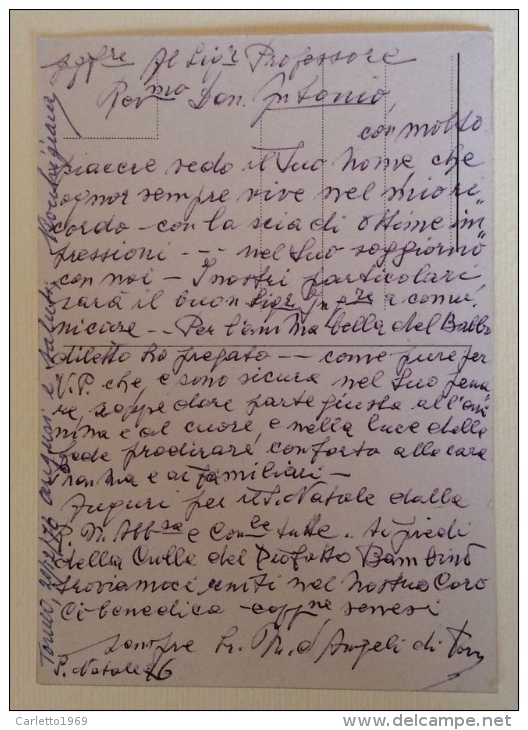 Il Sig.r Professore
Rev.mo Don Antonio,
con molto
piacere vedo il Suo nome, che
ognor sempre vive nel mio ri=
cordo - con la scia di ottime im=
pressioni - - - nel Suo soggiorno
con noi - I nostri particolari
sarà il buon Sig.r a comu,
nicare - - Per l'anima bella del Babbo
diletto ho pregato - - come pure per
V. P. che, e sono sicura nel Suo
re, seppe dare parte giusta all'
e al cuore, e nella luce della
fede prodigare conforto alla cara
e ai familiari -
Auguri per il S. Natale dalla
R. M. Abb.sa e Con.le tutte. Ai piedi
della Culla del Bambino
troviamoci uniti nel nostro Caro
Ci benedica
Sr. M. d'Angeli di
S. Natale 76
auguri e saluti
Carletto1969